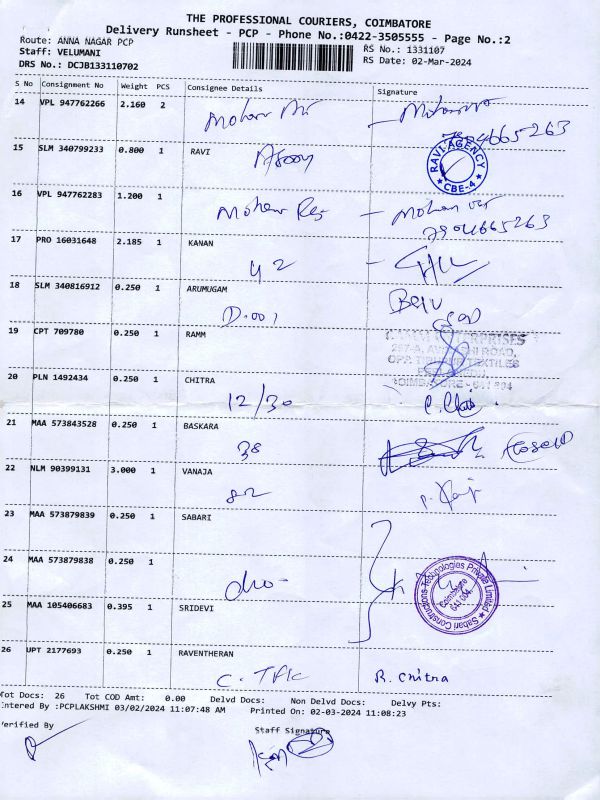 THE PROFESSIONAL COURIERS, COIMBATORE
Delivery Runsheet - PCP - Phone No.:0422-3505555 - Page No.:2
Route: ANNA NAGAR PCP RS No.: 1331107
Staff: VELUMANI RS Date: 02-Mar-2024
DRS No.: DCJB133110702
S No Consignment No Weight PCS Consignee Details Signature
14 VPL 947762266 2.160 2
Mohan
7904665263
15 SLM 340799233 0.800 1 RAVI
RAVI AGENCY
★ CBE-4 ★
16 VPL 947762283 1.200 1
Mohan
7904665263
17 PRO 16031648 2.185 1 KANAN
42
18 SLM 340816912 0.250 1 ARUMUGAM
D.001
19 CPT 709780 0.250 1 RAMM
20 PLN 1492434 0.250 1 CHITRA
12/30
21 MAA 573843528 0.250 1 BASKARA
38
22 NLM 90399131 3.000 1 VANAJA
82
23 MAA 573879839 0.250 1 SABARI
24 MAA 573879838 0.250 1
Sabari Constructions-Technologies Private Limited ★
Coimbatore
25 MAA 105406683 0.395 1 SRIDEVI
26 UPT 2177693 0.250 1 RAVENTHERAN
R. Chitra
Tot Docs: 26 Tot COD Amt: 0.00 Delvd Docs: Non Delvd Docs: Delvy Pts:
Entered By :PCPLAKSHMI 03/02/2024 11:07:48 AM Printed On: 02-03-2024 11:08:23
Verified By Staff Signature